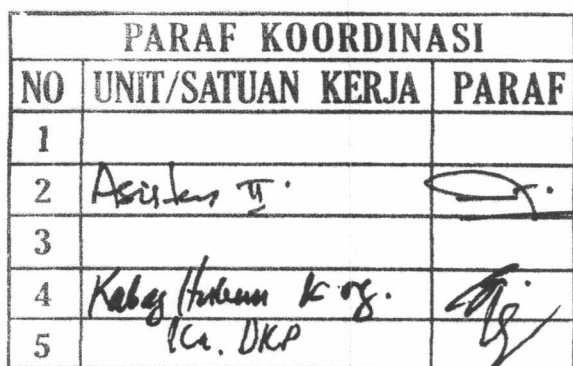 PARAF KOORDINASI
NO UNIT/SATUAN KERJA PARAF
1
2 Asisten II.
3
4 Kabag Hukum & org.
5 Ka. DKP